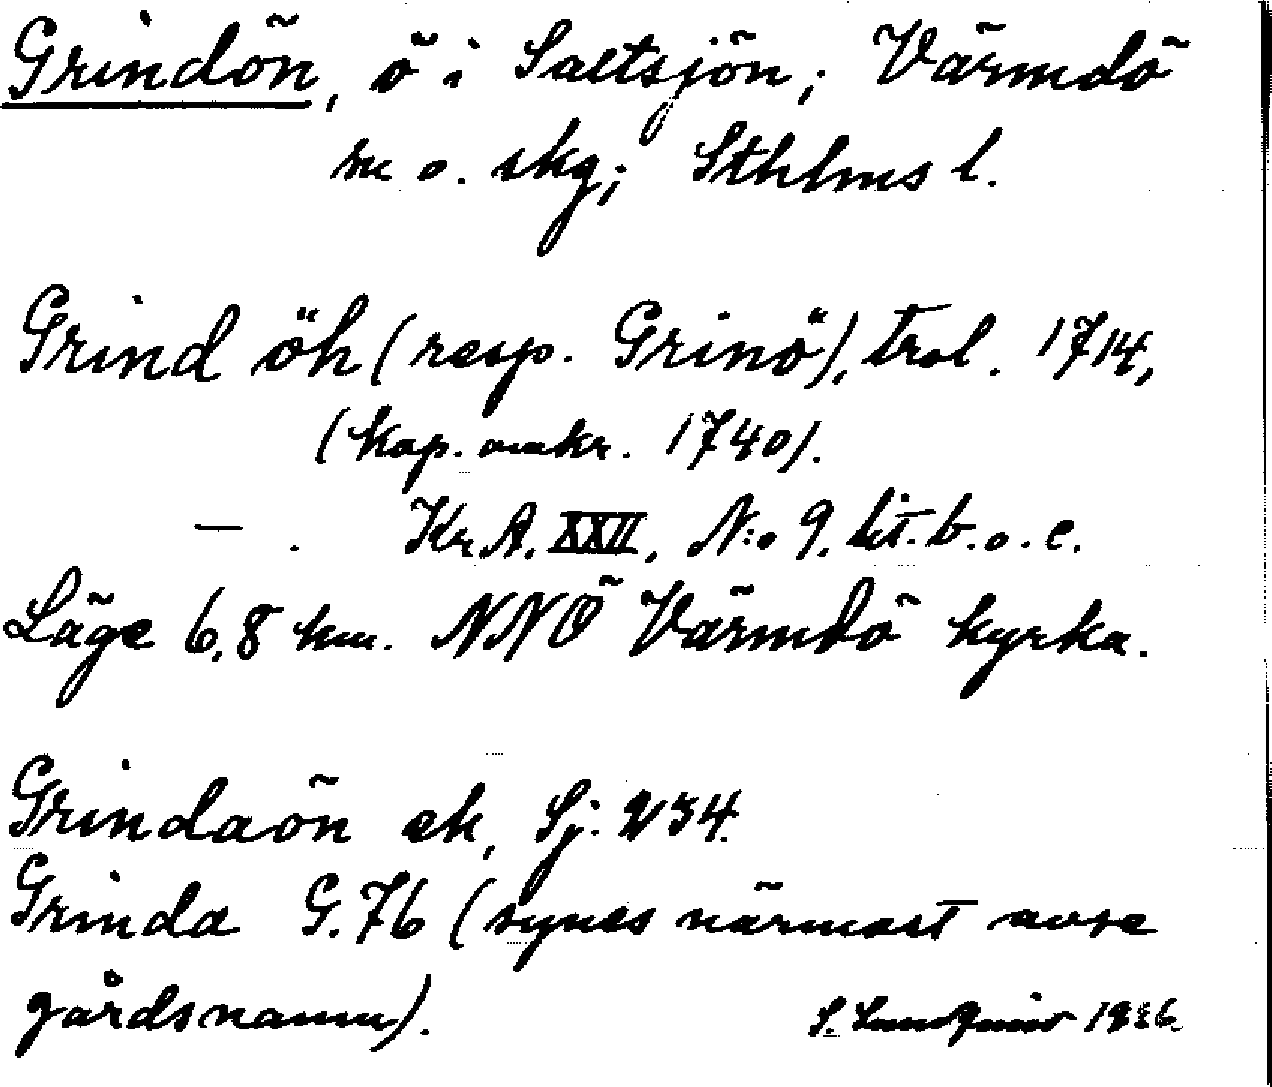 Grindön, ö i Saltsjön; Värmdö
sn o. skg; Sthlms l.
Grind öh (resp. Grinö), trol. 1714,
(kop. omkr. 1740).
— . Kr. A. XXII, N:o 9. lit. b. o. c.
Läge 6,8 km. NNÖ Värmdö kyrka.
Grindaön ek, Sj. 234.
Grinda G. 76 (synes närmast avse
gårdsnamn). S.